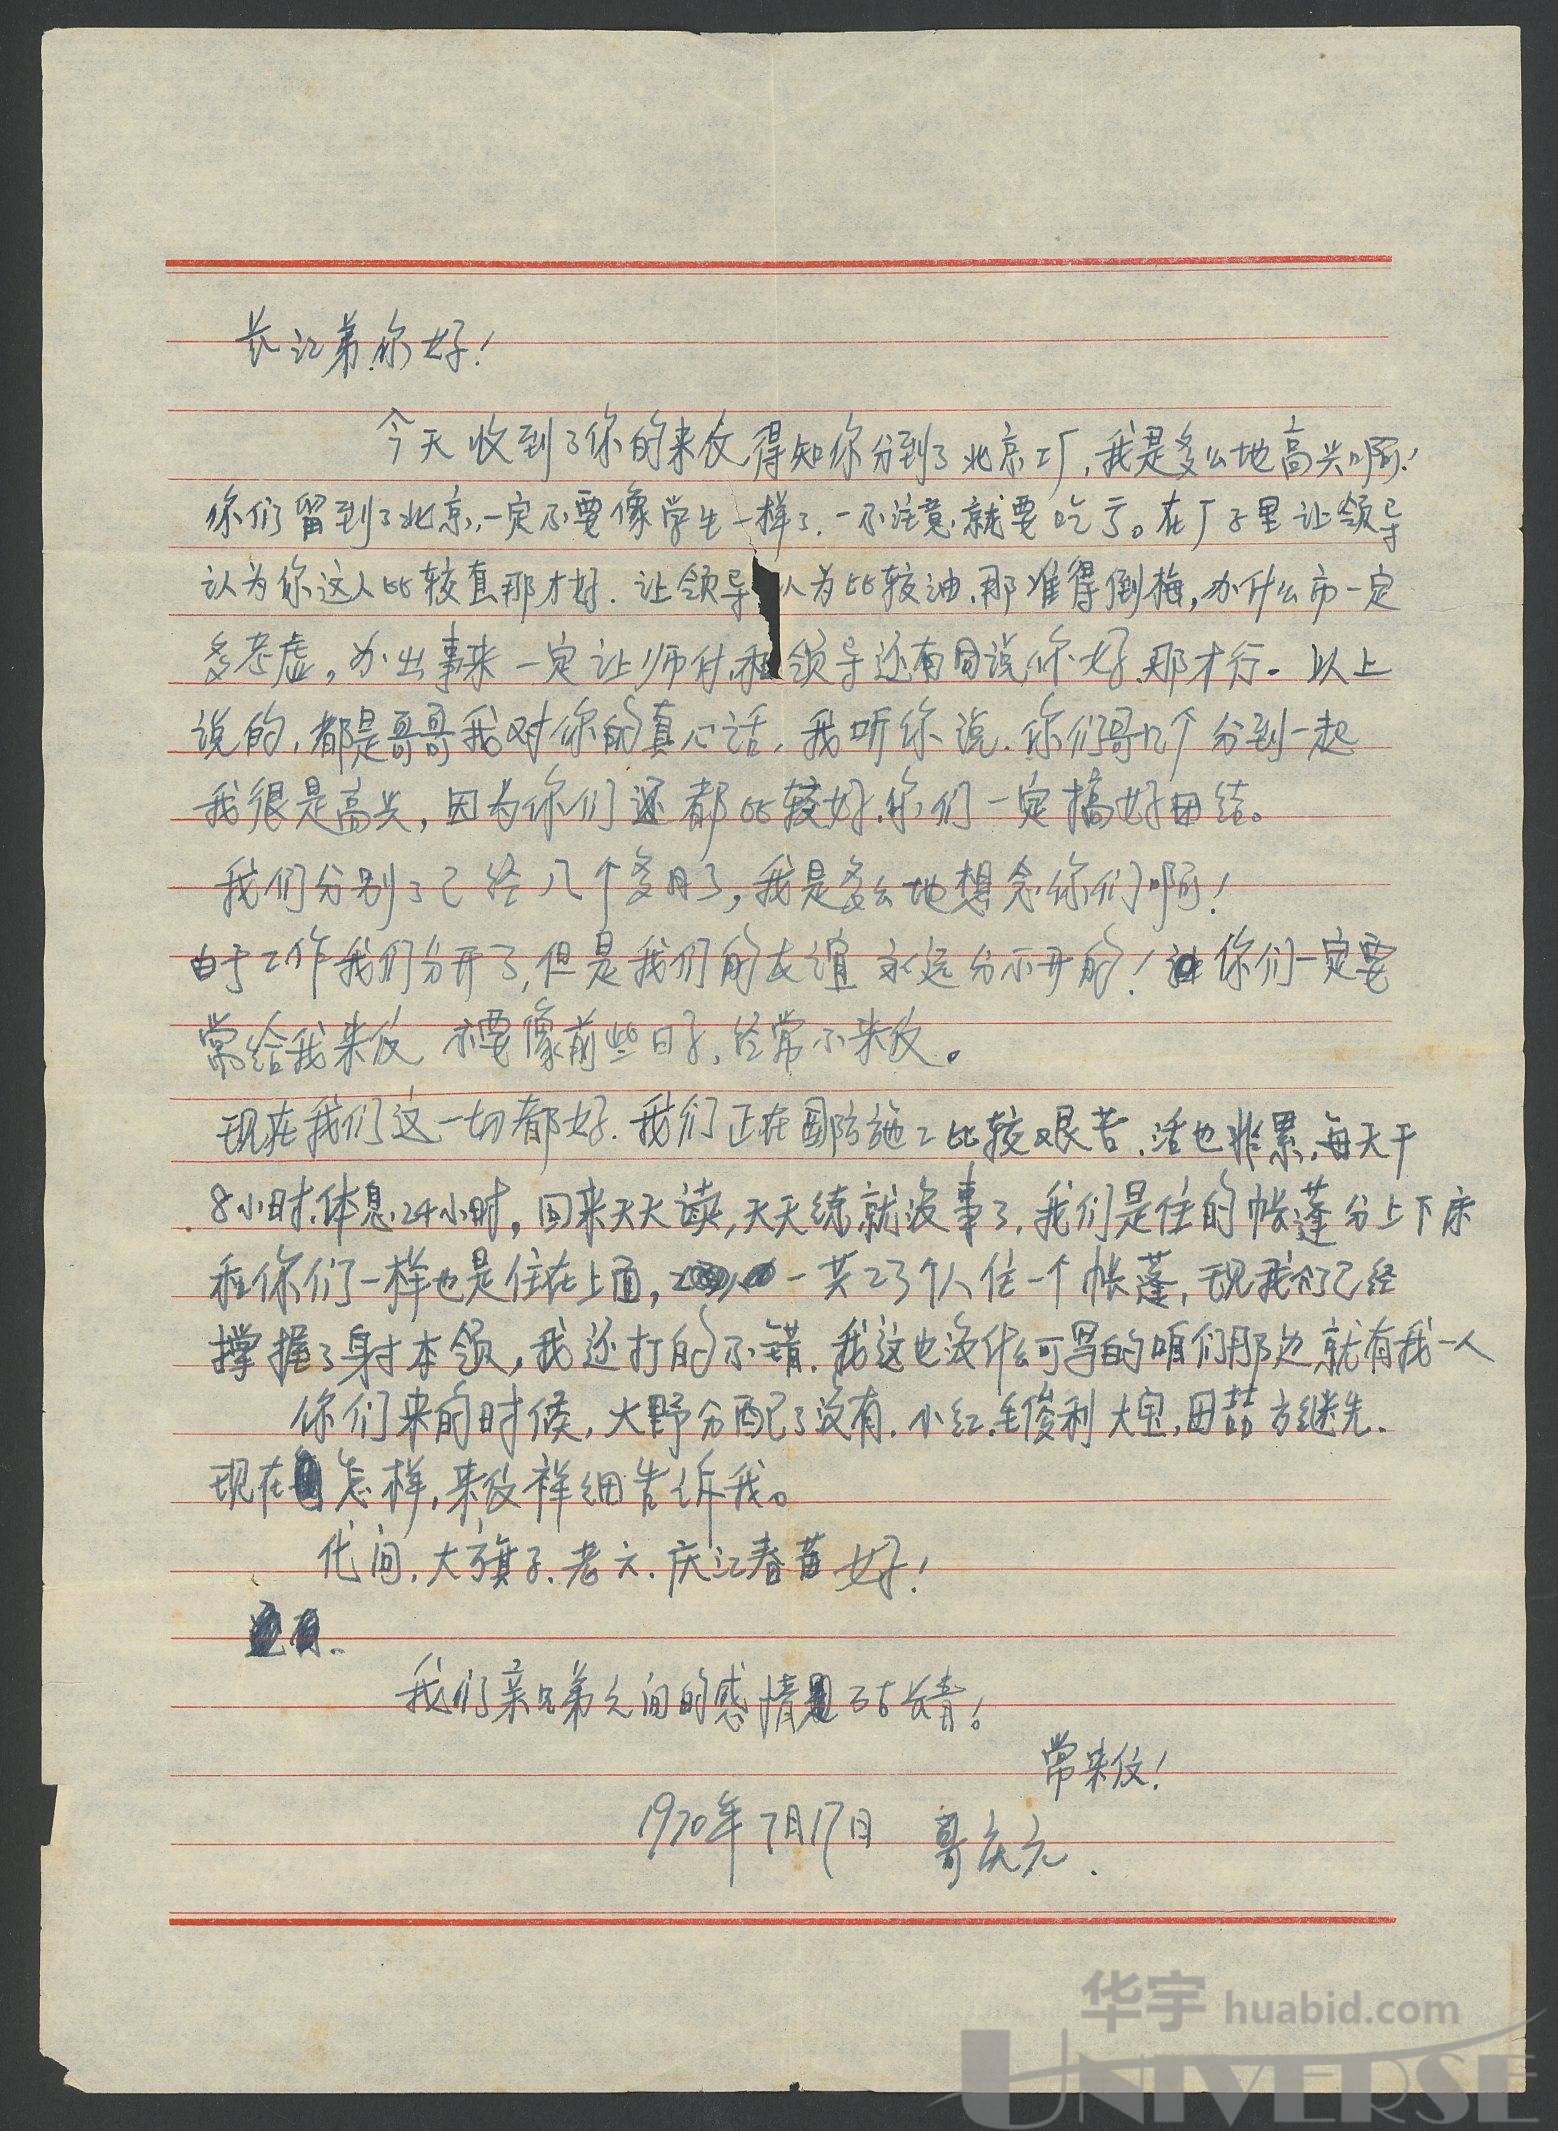 长江弟你好！
今天收到了你的来仪，得知你分到了北京工厂，我是多么地高兴啊！
你们留到了北京，一定不要像学生一样了．一不注意就要吃亏。在厂子里让领导
认为你这人比较直那才好．让领导认为比较油．那准得倒梅，办什么市一定
多考虑，办出事来一定让师付和领导还有同说你好．那才行。以上
说的，都是哥哥我对你的真心话．我听你说．你们哥几个分到一起
我很是高兴，因为你们还都比较好．你们一定搞好团结。
我们分别了已经八个多月了，我是多么地想念你们啊！
由于工作我们分开了，但是我们的友谊永远分不开的！你们一定要
常给我来仪 不要像前些日子，经常不来仪。
现在我们这一切都好．我们正在国防施工比较艰苦．活也非累，每天干
8小时．体息24小时，回来天天读，天天练就没事了．我们是住的帐蓬分上下床
和你们一样也是住在上面，一共23个人住一个帐蓬，现我们已经
撑握了射本领，我还打的不错．我这也没什么可写的咱们那边就有我一人
你们来的时候，大野分配了没有．小红．毛俊利 大宝，田喆 方继先．
现在怎样，来仪祥细告诉我。
代问．大旗子．老六．庆江春苗好！
我们亲兄弟之间的感情万古长青！
常来仪！
1970年7月17日 哥庆元．
华宇 huabid.com
UNIVERSE